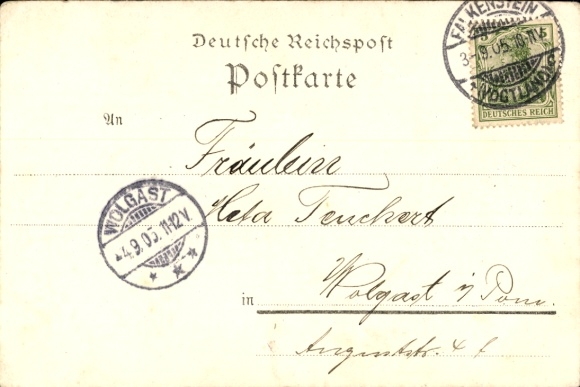 Deutsche Reichspost
Postkarte
FALKENSTEIN
3.9.05.10-11V.
(VOGTLAND)
DEUTSCHES REICH
An
Fräulein
Teuchert
WOLGAST
4.9.05.11-12V.
in Wolgast i/Pom.
Auguststr. 4